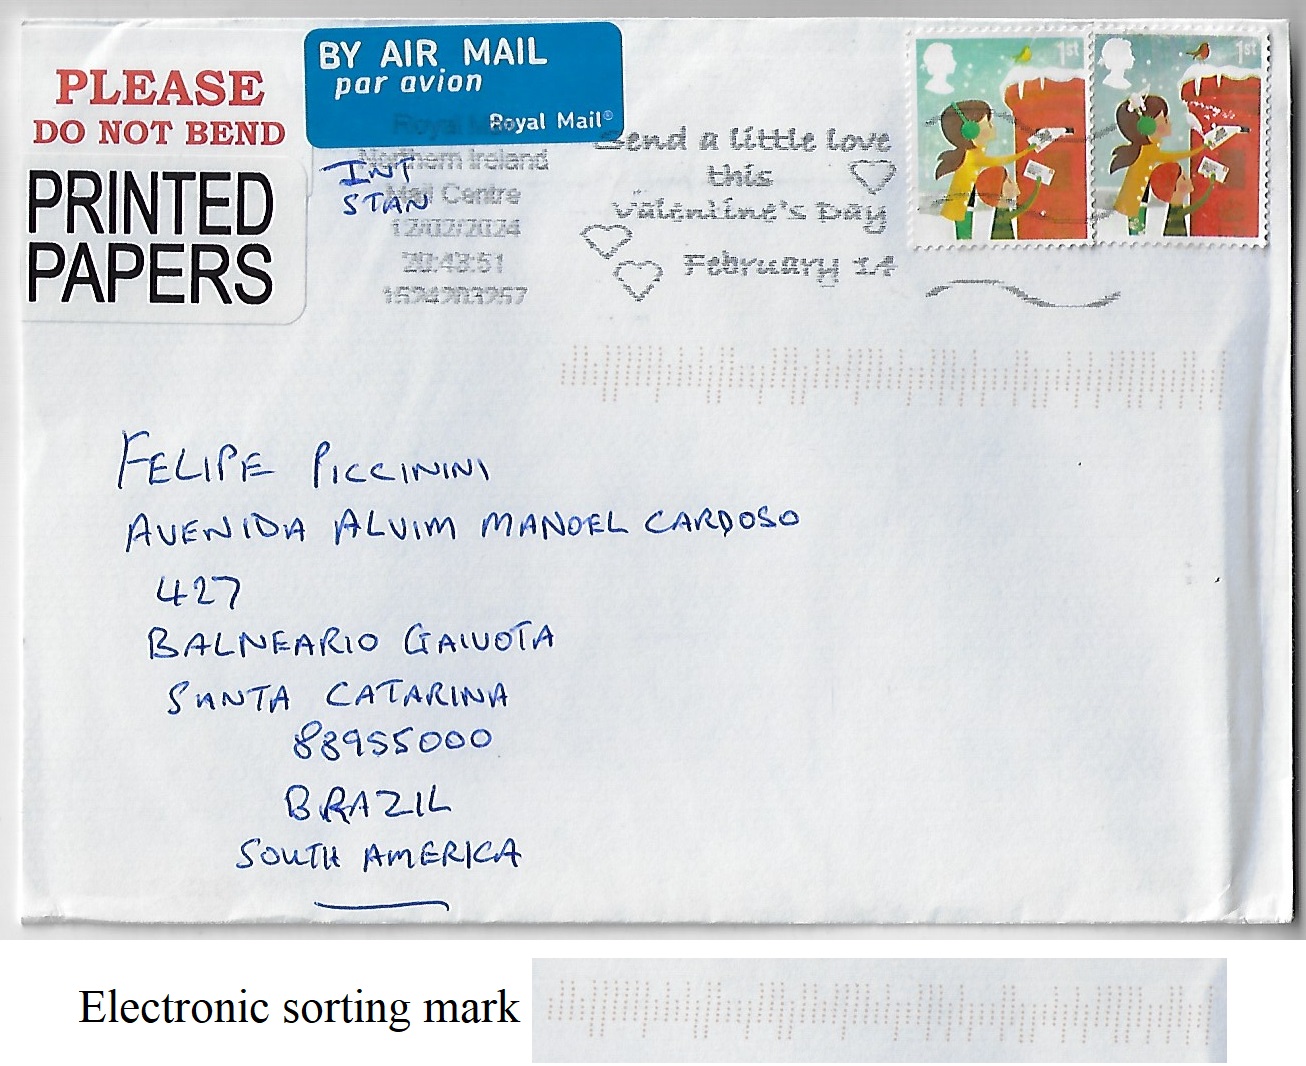 PLEASE
DO NOT BEND
PRINTED
PAPERS
BY AIR MAIL
par avion
Royal Mail®
INT
STAN
Royal Mail
Northern Ireland
Mail Centre
12/02/2024
20:43:51
Send a little love
this
Valentine's Day
February 14
1st
1st
FELIPE PICCININI
AVENIDA ALVIM MANOEL CARDOSO
427
BALNEARIO GAIVOTA
SANTA CATARINA
88955000
BRAZIL
SOUTH AMERICA
Electronic sorting mark